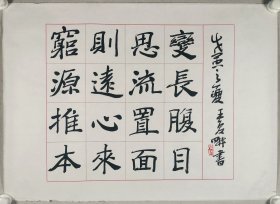 窮則思變
源遠流長
推心置腹
本來面目
戊寅之夏 王
書